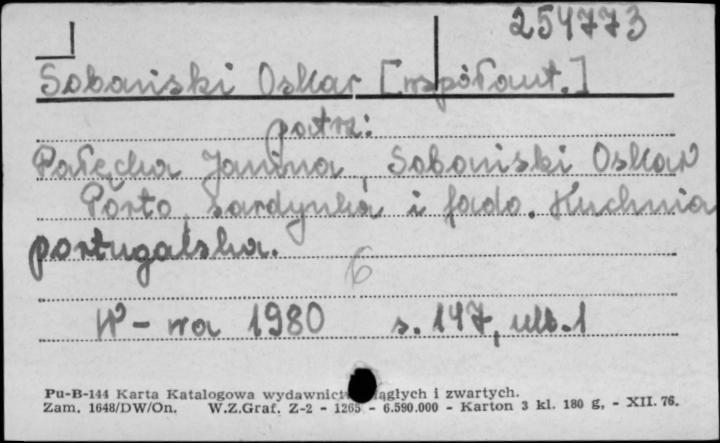 254773
Sobański Oskar [współaut.]
patrz:
Pałęcka Janina, Sobański Oskar
Porto, sardynka i fado. Kuchnia
portugalska.
6
W-wa 1980 s. 147, ulb. 1
Pu-B-144 Karta Katalogowa wydawnict ciągłych i zwartych.
Zam. 1648/DW/On. W.Z.Graf. Z-2 - 1265 - 6.590.000 - Karton 3 kl. 180 g, - XII. 76.